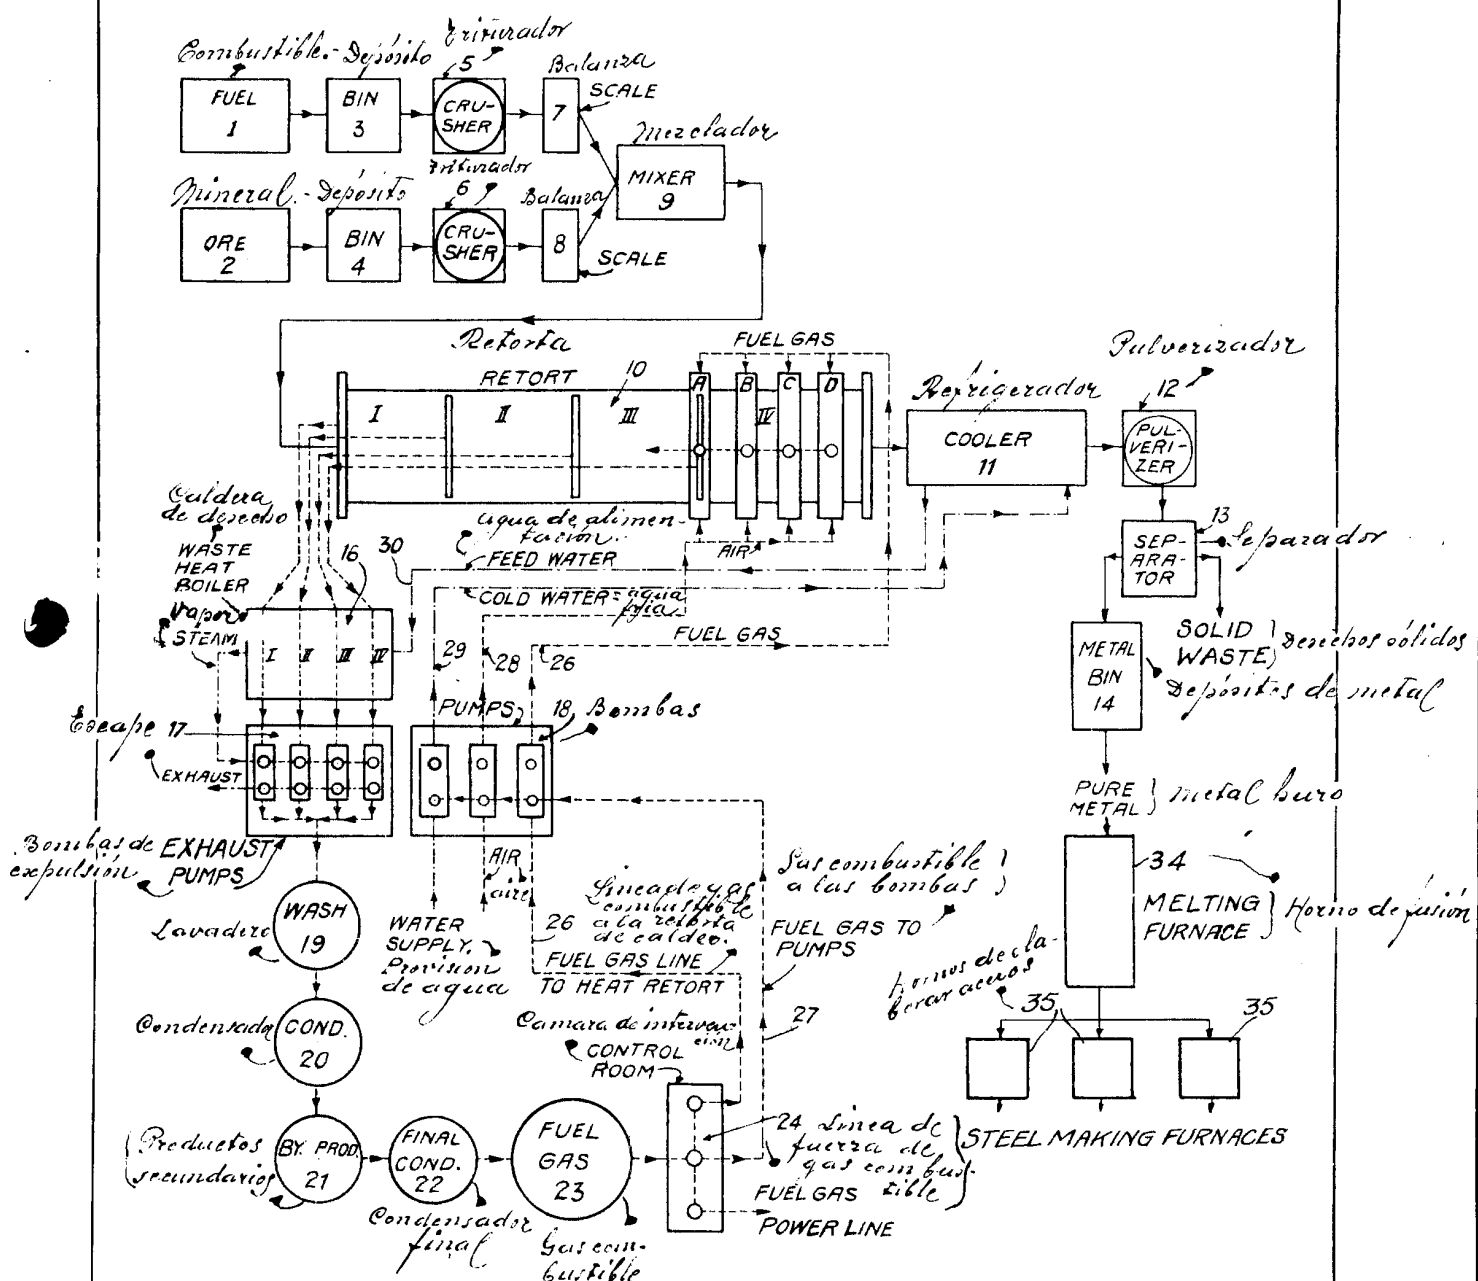 Combustible.- Depósito
Triturador
5
Balanza
FUEL
1
BIN
3
CRU-
SHER
7
SCALE
Mezclador
MIXER
9
Mineral.- Depósito
Triturador
6
Balanza
ORE
2
BIN
4
CRU-
SHER
8
SCALE
Retorta
RETORT
10
FUEL GAS
I
II
III
IV
A
B
C
D
AIR
Refrigerador
COOLER
11
Pulverizador
12
PUL-
VERI-
ZER
13
SEP-
ARA-
TOR
Separador
SOLID
WASTE
Desechos sólidos
METAL
BIN
14
Depósitos de metal
PURE
METAL
metal puro
34
MELTING
FURNACE
Horno de fusión
35
35
STEEL MAKING FURNACES
Caldera
de desecho
WASTE
HEAT
BOILER
Vapor
STEAM
16
30
I
II
III
IV
agua de alimen-
tación.
FEED WATER
COLD WATER = agua
fría
FUEL GAS
29
28
26
PUMPS
18
Bombas
Escape
17
EXHAUST
Bombas de
expulsión
EXHAUST
PUMPS
AIR
aire
WATER
SUPPLY.
Provision
de agua
26
Linea de gas
combustible
a la retorta
de caldeo.
FUEL GAS LINE
TO HEAT RETORT
Gas combustible
a las bombas
FUEL GAS TO
PUMPS
27
Lavadero
WASH
19
Condensador
COND.
20
Productos
secundarios
BY. PROD.
21
FINAL
COND.
22
Condensador
final
FUEL
GAS
23
Gas com-
bustible
Camara de interven-
ción
CONTROL
ROOM
24
Linea de
fuerza de
gas combus-
tible
FUEL GAS
POWER LINE